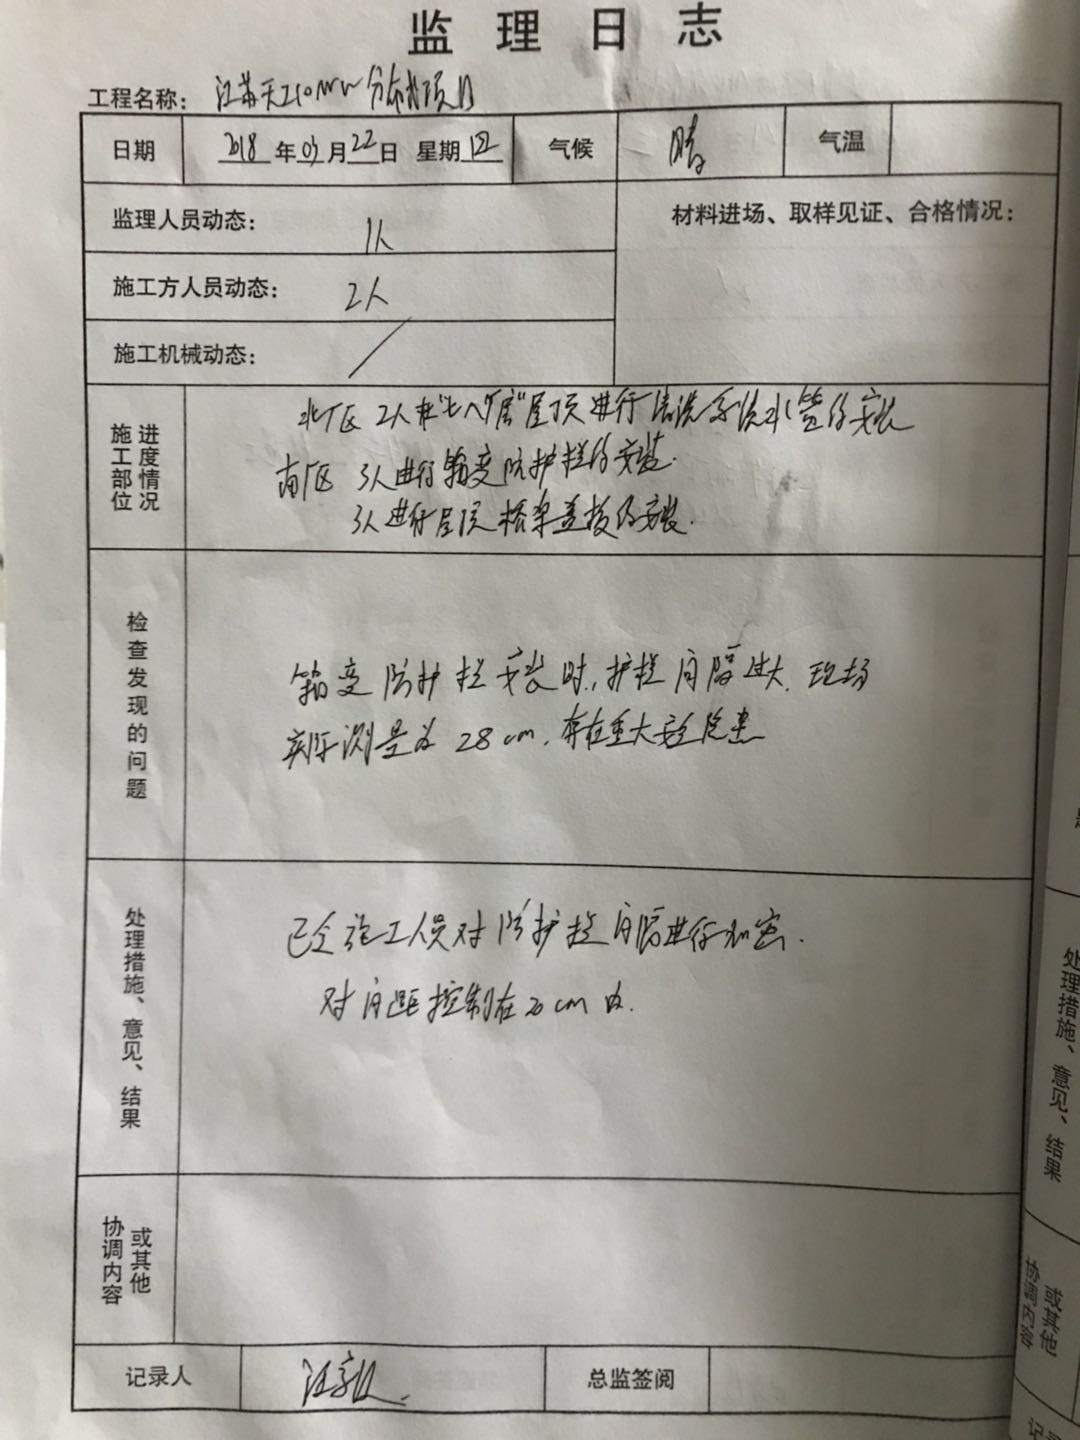 监理日志
工程名称： 江苏天工10MW分布式项目
日期 2018年03月22日 星期四 气候 晴 气温
监理人员动态： 1人 材料进场、取样见证、合格情况：
施工方人员动态： 2人
施工机械动态： /
进度情况
施工部位
北厂区 2人在"七八厂房"屋顶进行清洗系统水管的安装
南厂区 3人进行箱变防护栏的安装.
3人进行屋顶桥架盖板的安装.
检查发现的问题
箱变防护栏安装时,护栏间隔过大.现场
实际测量为28cm.存在重大安全隐患
处理措施、意见、结果
已令施工人员对防护栏间隔进行加密.
对间距控制在20cm内.
或其他
协调内容
记录人 总监签阅
处理措施、意见、结果
或其他
协调内容